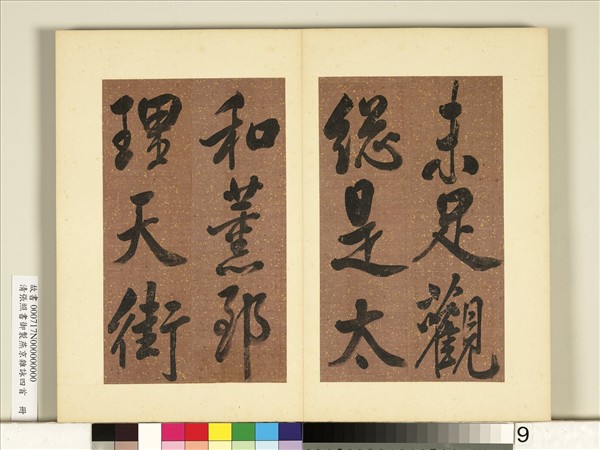 未足觀
總是太
和薰郅
理天街
故書000717N000000000
清張照書御製燕京雜詠四首 冊
9